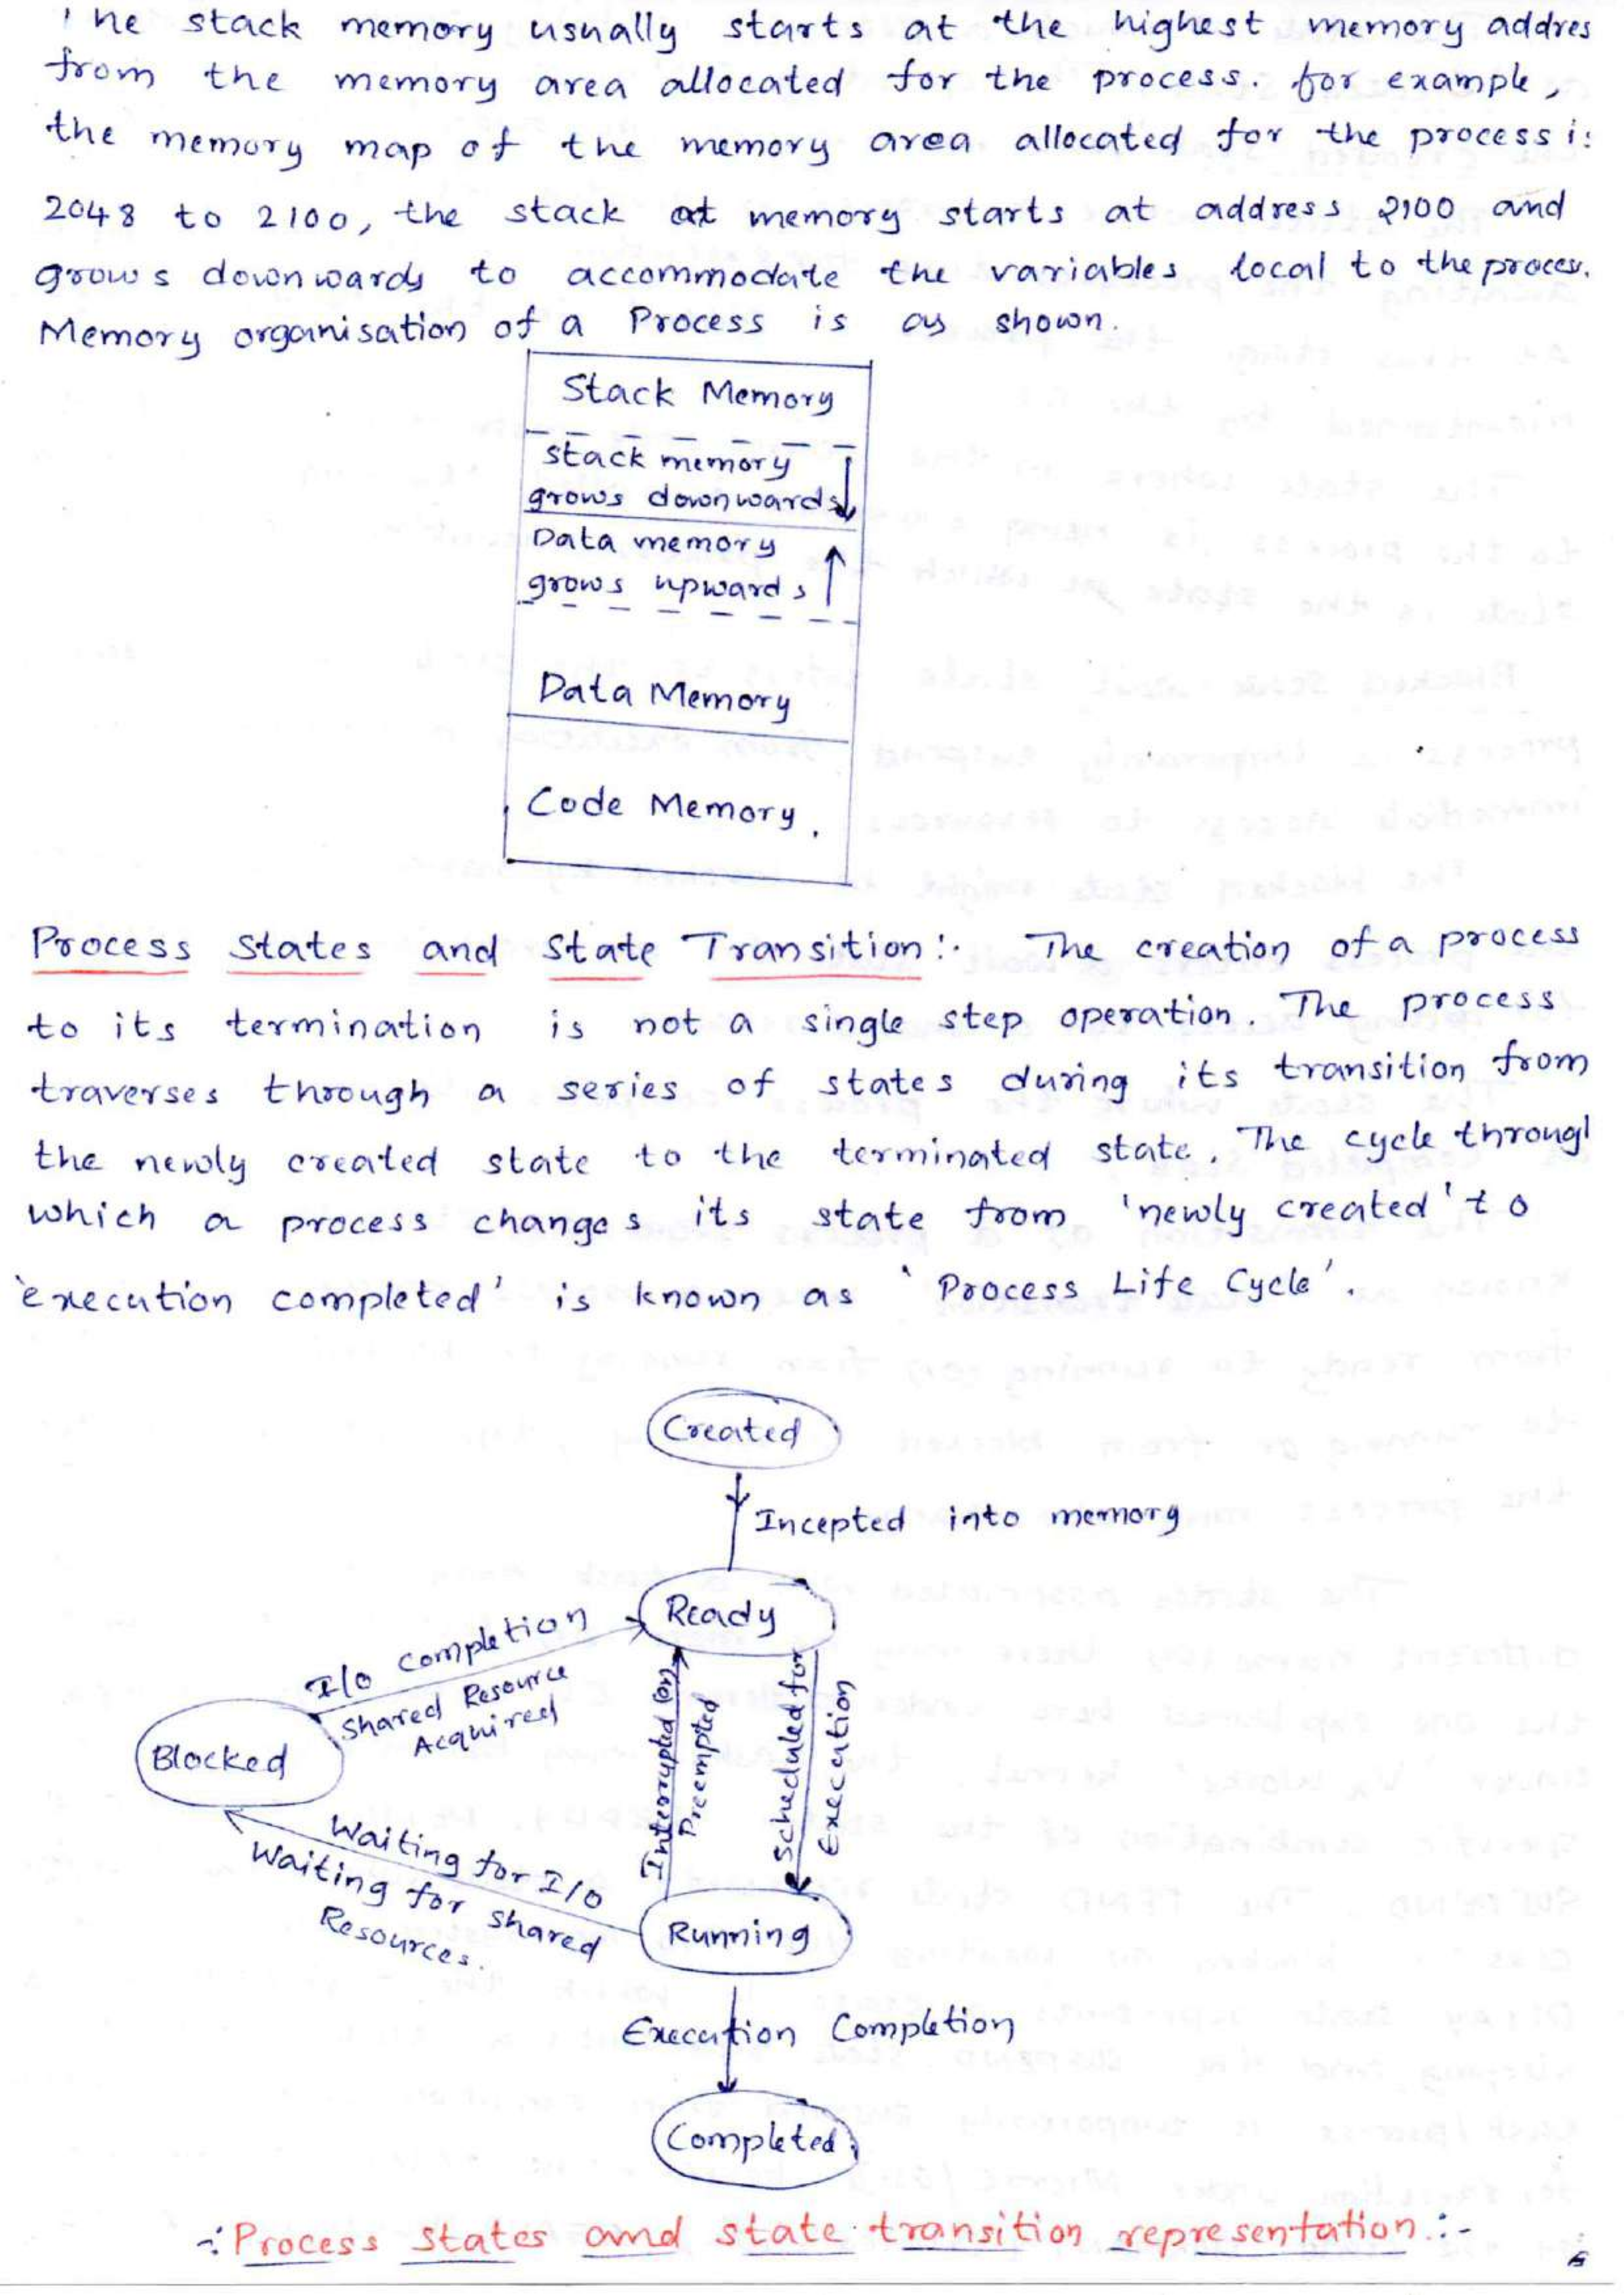 The stack memory usually starts at the highest memory addres
from the memory area allocated for the process. for example,
the memory map of the memory area allocated for the process i:
2048 to 2100, the stack at memory starts at address 2100 and
grows downwards to accommodate the variables local to the process.
Memory organisation of a Process is as shown.
Stack Memory
stack memory
grows downwards
Data memory
grows upwards
Data Memory
Code Memory.
Process States and State Transition:. The creation of a process
to its termination is not a single step operation. The process
traverses through a series of states during its transition from
the newly created state to the terminated state. The cycle through
which a process changes its state from 'newly created' to
'execution completed' is known as 'Process Life Cycle'.
Created
Incepted into memory
Ready
I/O Completion
Shared Resource
Acquired
Blocked
Interrupted (or)
Preempted
Scheduled for
Execution
Waiting for I/O
Waiting for shared
Resources.
Running
Execution Completion
Completed
-: Process States and state transition representation.:-